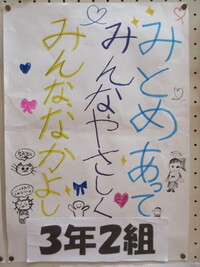 みとめあって
みんなやさしく
みんななかよし
3年2組